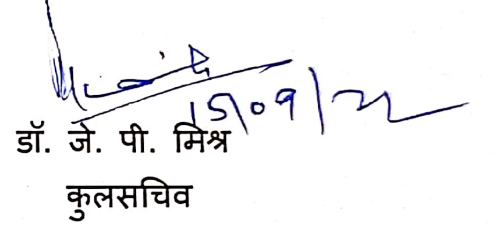 15/09/22
डॉ. जे. पी. मिश्र
कुलसचिव